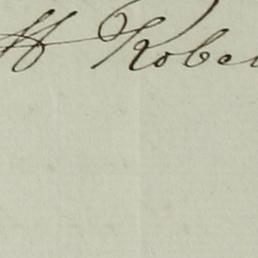 H Rober